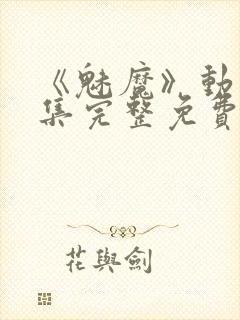 《魅魔》動
集完整免費
花與劍